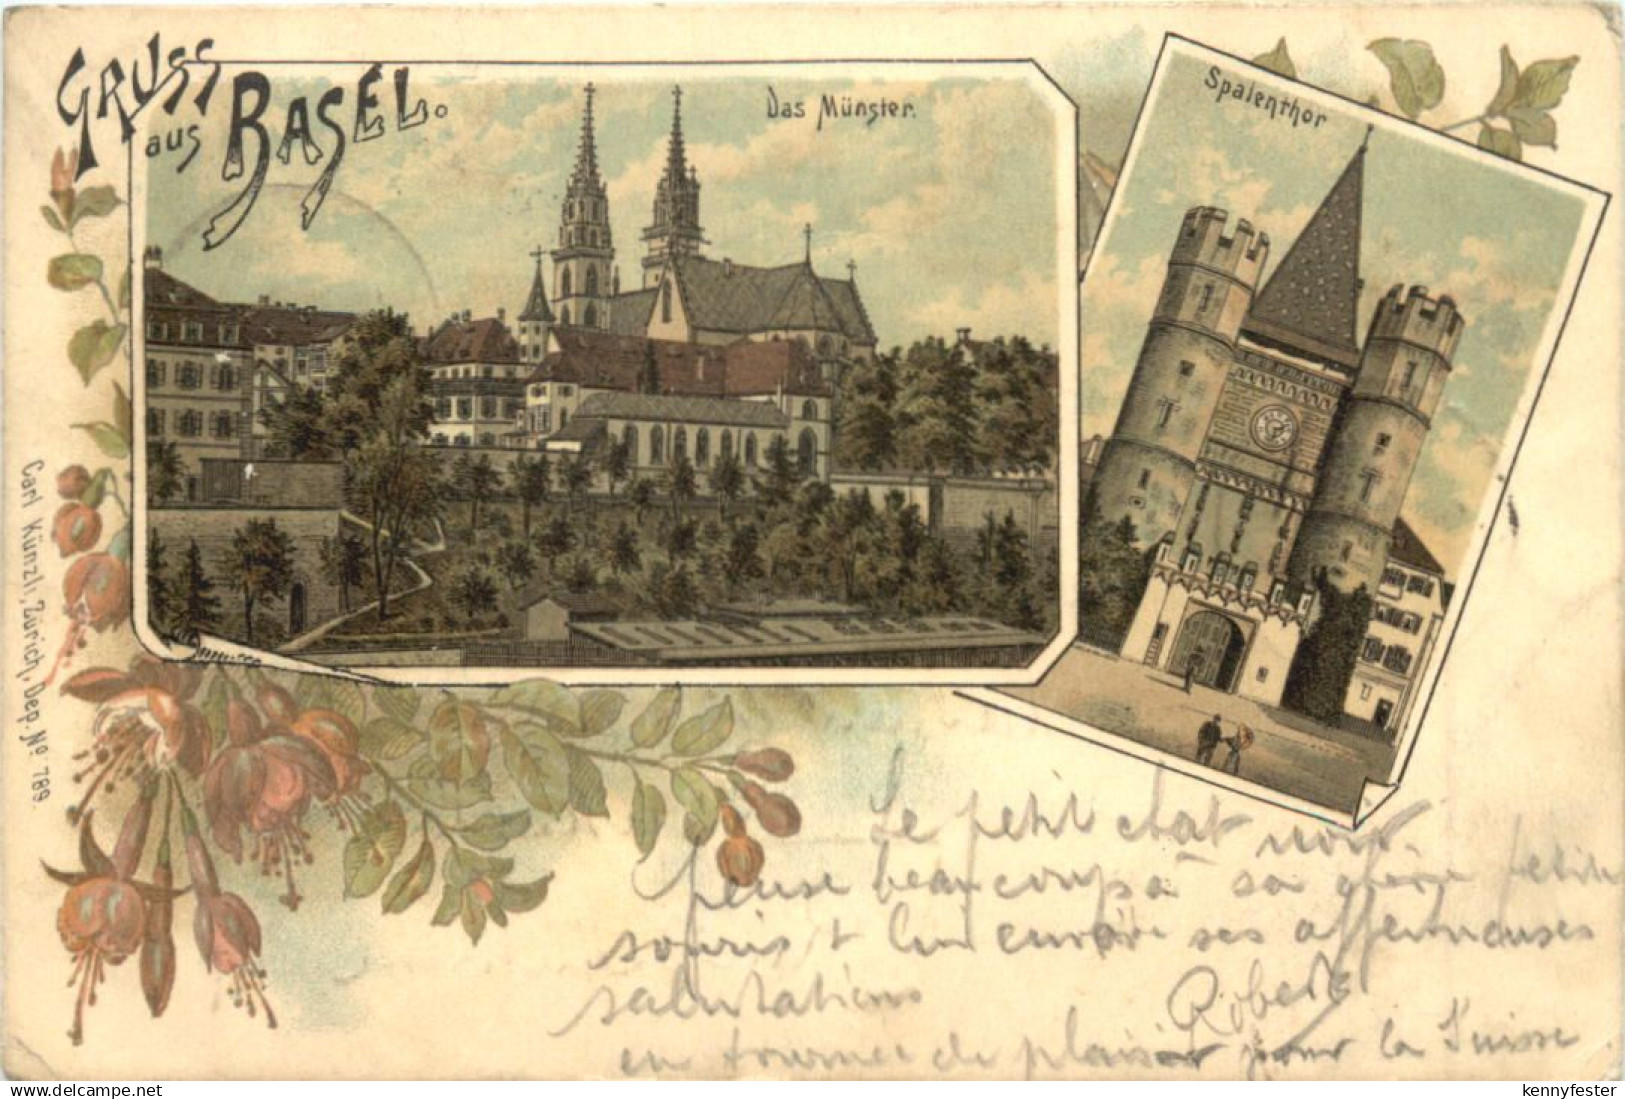 Gruss
aus Basel.
Das Münster.
Spalenthor
Carl Künzli, Zürich, Dep. No 789.
Le petit chat noir
pense beaucoup à sa chère petite
souris & lui envoie ses affectueuses
salutations
Robert
en tournée de plaisir pour la Suisse
www.delcampe.net
kennyfester